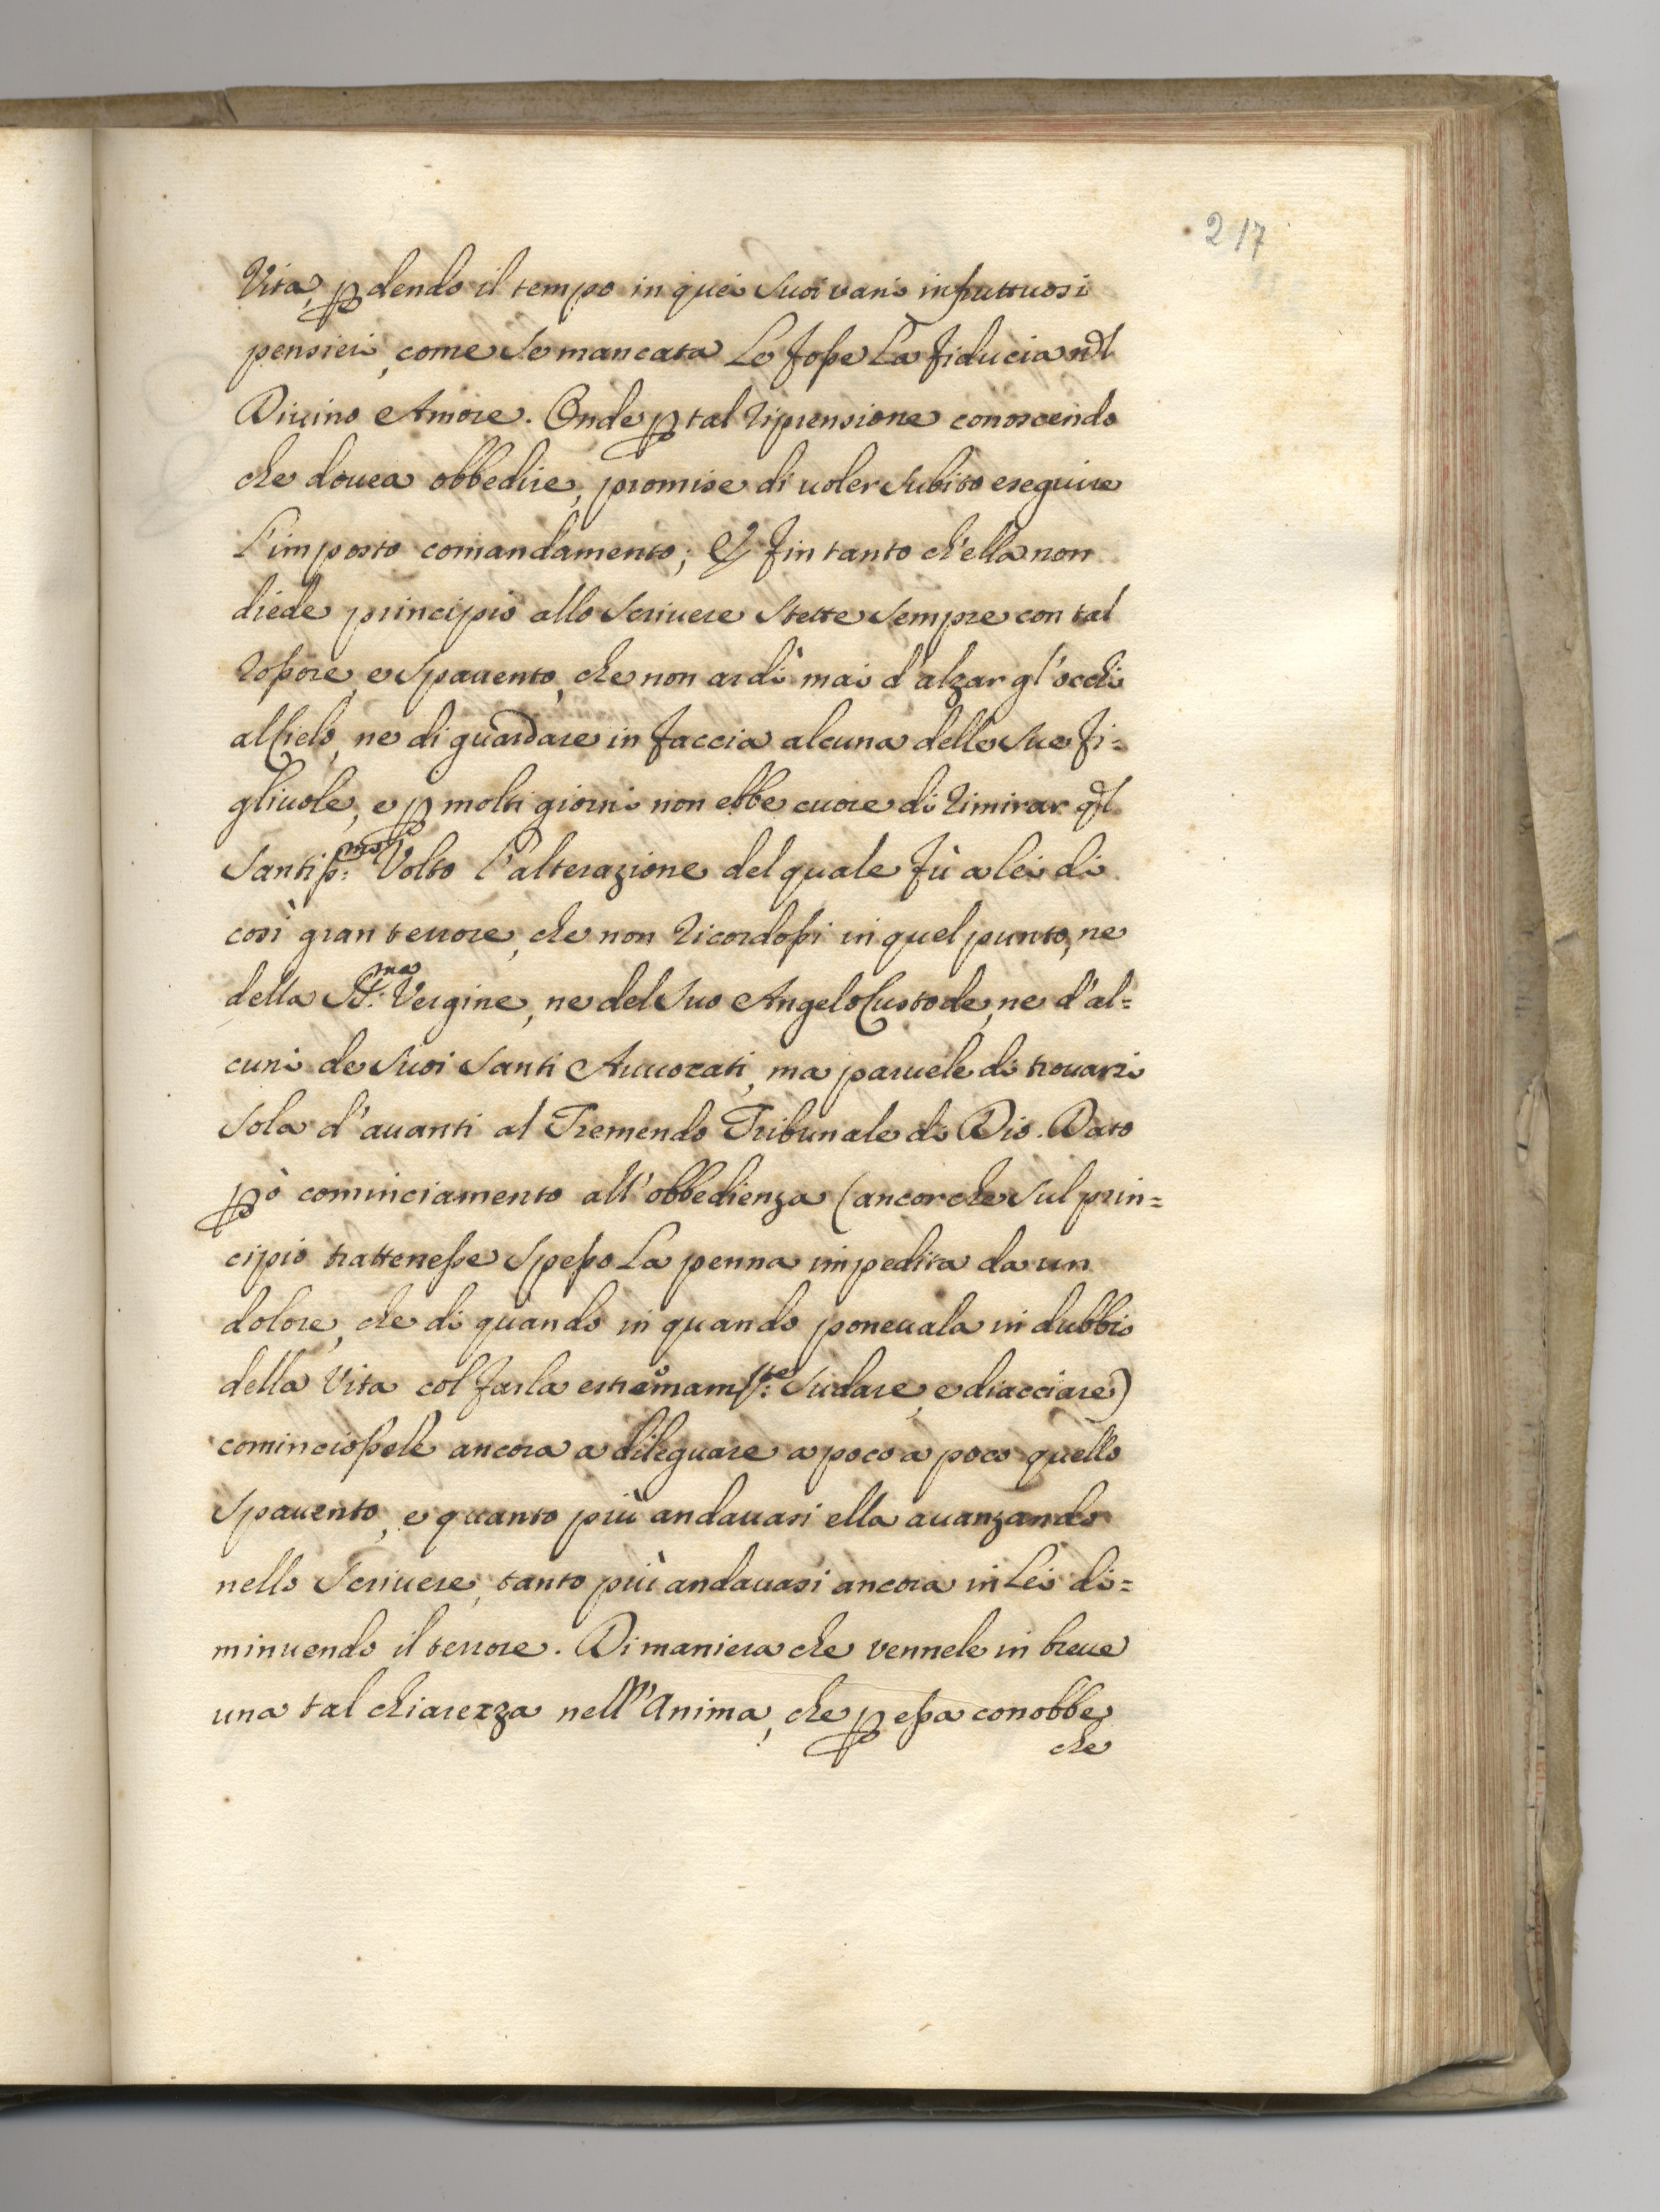 217
Vita, ꝑdendo il tempo in quei suoi vani infruttuosi
pensieri, come se mancata Le fosse La fiducia nel
Divino Amore. Onde ꝑ tal riprensione conoscendo
che douea obbedire, promise di uoler subito eseguire
L'imposto comandamento; Et fin tanto ch'ella non
diede principio allo scriuere stette sempre con tal
rossore, e spauento, che non ardì mai d'alzar gl'occhi
al Cielo, ne di guardare in faccia alcuna delle sue fi=
gliuole, e ꝑ molti giorni non ebbe cuore di rimirar ql
Santiss:mo Volto l'alterazione del quale fù a lei di
così gran terrore, che non ricordossi in quel punto, ne
della SS:ma Vergine, ne del suo Angelo Custode, ne d'al=
cuni de suoi Santi Auuocati, ma paruele di trouarsi
sola d'auanti al Tremendo Tribunale di Dio. Dato
ꝑò cominciamento all'obbedienza (ancorche sul prin=
cipio trattenesse spesso La penna impedita da un
dolore, che di quando in quando poneuala in dubbio
della Vita col farla estremam:te sudare, e diacciare)
cominciossele ancora a dileguare a poco a poco quello
spauento, e quanto più andauasi ella auanzando
nello scriuere, tanto più andauasi ancora in Lei di=
minuendo il terrore. Di maniera che vennele in breue
una tal chiarezza nell'Anima, che ꝑ essa conobbe
che